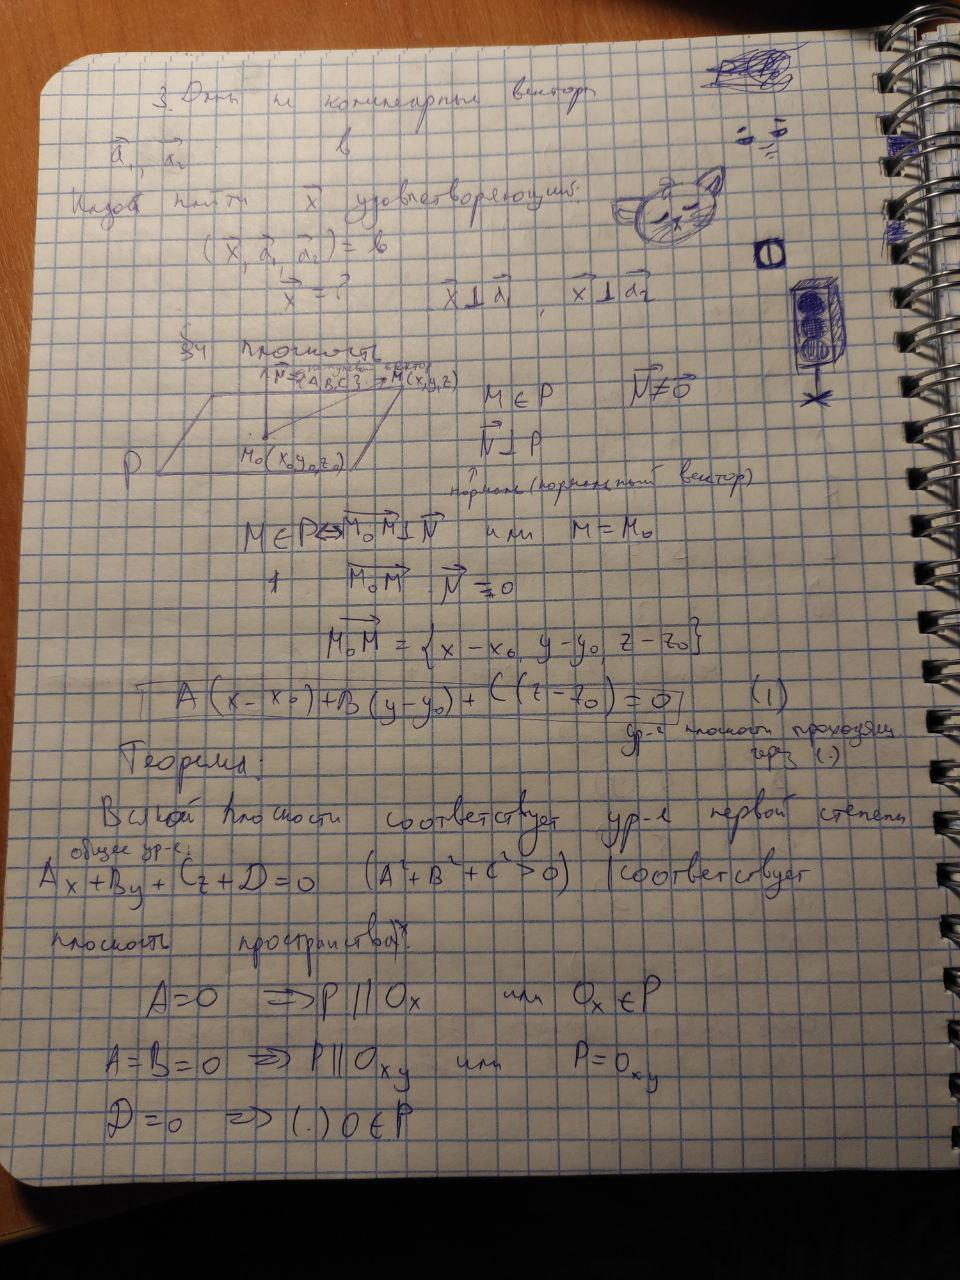 3. Даны не коллинеарные векторы
a⃗₁, a⃗₂ в
Надо найти x⃗ удовлетворяющий:
(x⃗, a⃗₁, a⃗₂) = в
x⃗ = ? x⃗ ⊥ a⃗₁, x⃗ ⊥ a⃗₂
§4 плоскость
вектор
N⃗ = {A, B, C} M(x,y,z)
M ∈ P N⃗ ≠ 0⃗
N⃗ ⊥ P
P M₀(x₀,y₀,z₀)
нормаль (нормальный вектор)
M ∈ P ⇔ M₀M⃗ ⊥ N⃗ или M = M₀
M₀M⃗ · N⃗ = 0
M₀M⃗ = {x – x₀, y – y₀, z – z₀}
A(x – x₀) + B(y – y₀) + C(z – z₀) = 0 (1)
ур-е плоскости проходящ
через (·)
Теорема:
Всякой плоскости соответствует ур-е первой степени
общее ур-е
Ax + By + Cz + D = 0 (A² + B² + C² > 0) (соответствует
плоскость пространства).
A = 0 ⇒ P || Ox или Ox ∈ P
A = B = 0 ⇒ P || Oxy или P = Oxy
D = 0 ⇒ (·) O ∈ P